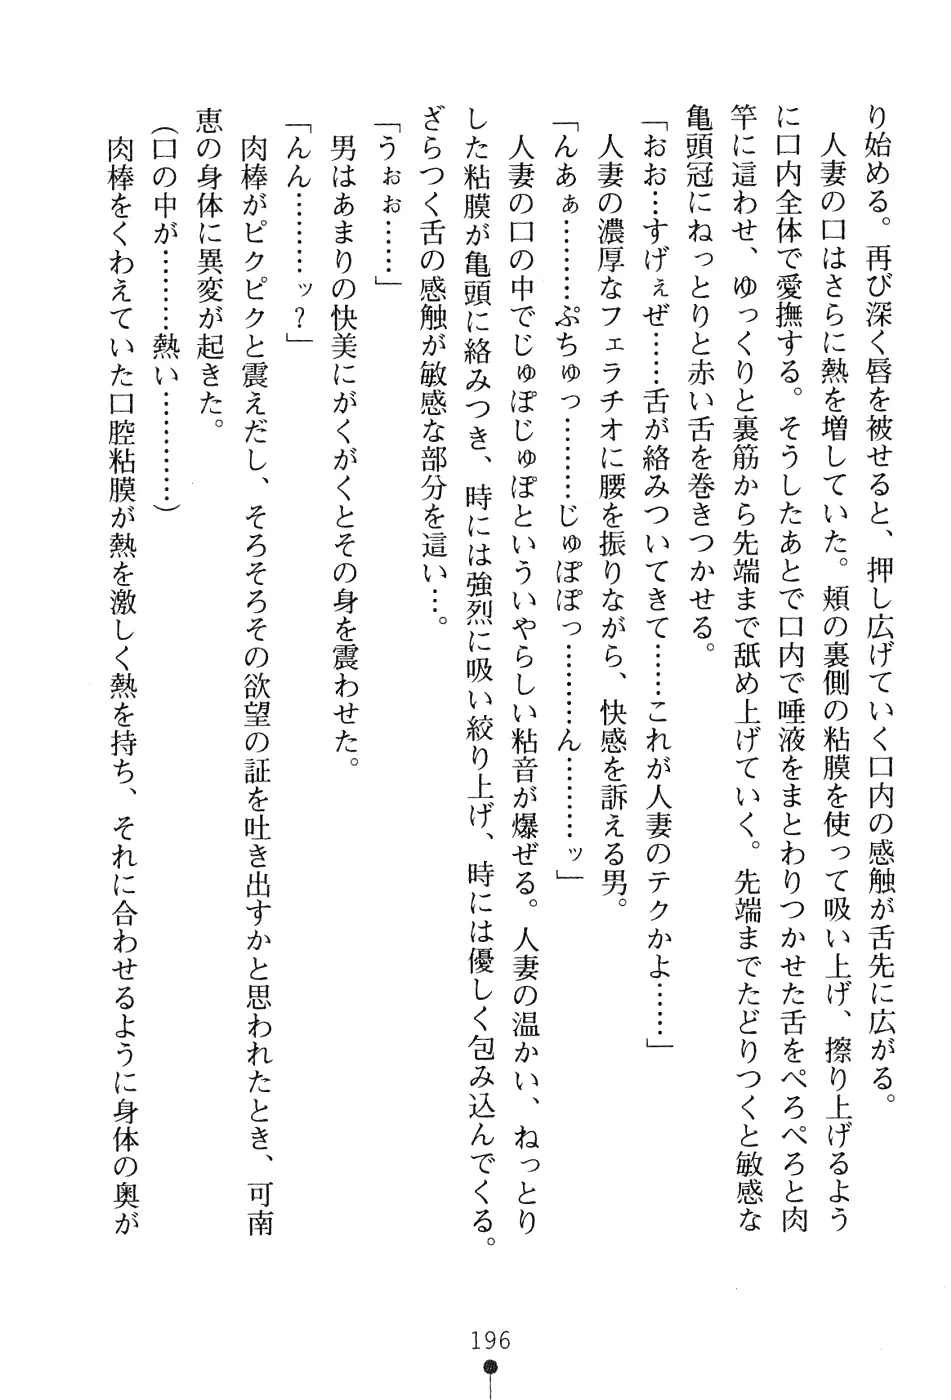 り始める。再び深く唇を被せると、押し広げていく口内の感触が舌先に広がる。
人妻の口はさらに熱を増していた。頬の裏側の粘膜を使って吸い上げ、擦り上げるよう
に口内全体で愛撫する。そうしたあとで口内で唾液をまとわりつかせた舌をぺろぺろと肉
竿に這わせ、ゆっくりと裏筋から先端まで舐め上げていく。先端までたどりつくと敏感な
亀頭冠にねっとりと赤い舌を巻きつかせる。
「おお…すげぇぜ……舌が絡みついてきて……これが人妻のテクかよ……」
人妻の濃厚なフェラチオに腰を振りながら、快感を訴える男。
「んあぁ………ぷちゅっ………じゅぽぽっ………ん………ッ」
人妻の口の中でじゅぽじゅぽといういやらしい粘音が爆ぜる。人妻の温かい、ねっとり
した粘膜が亀頭に絡みつき、時には強烈に吸い絞り上げ、時には優しく包み込んでくる。
ざらつく舌の感触が敏感な部分を這い…。
「うぉぉ……」
男はあまりの快美にがくがくとその身を震わせた。
「んん………ッ？」
肉棒がピクピクと震えだし、そろそろその欲望の証を吐き出すかと思われたとき、可南
恵の身体に異変が起きた。
（口の中が………熱い…………）
肉棒をくわえていた口腔粘膜が熱を激しく熱を持ち、それに合わせるように身体の奥が
196